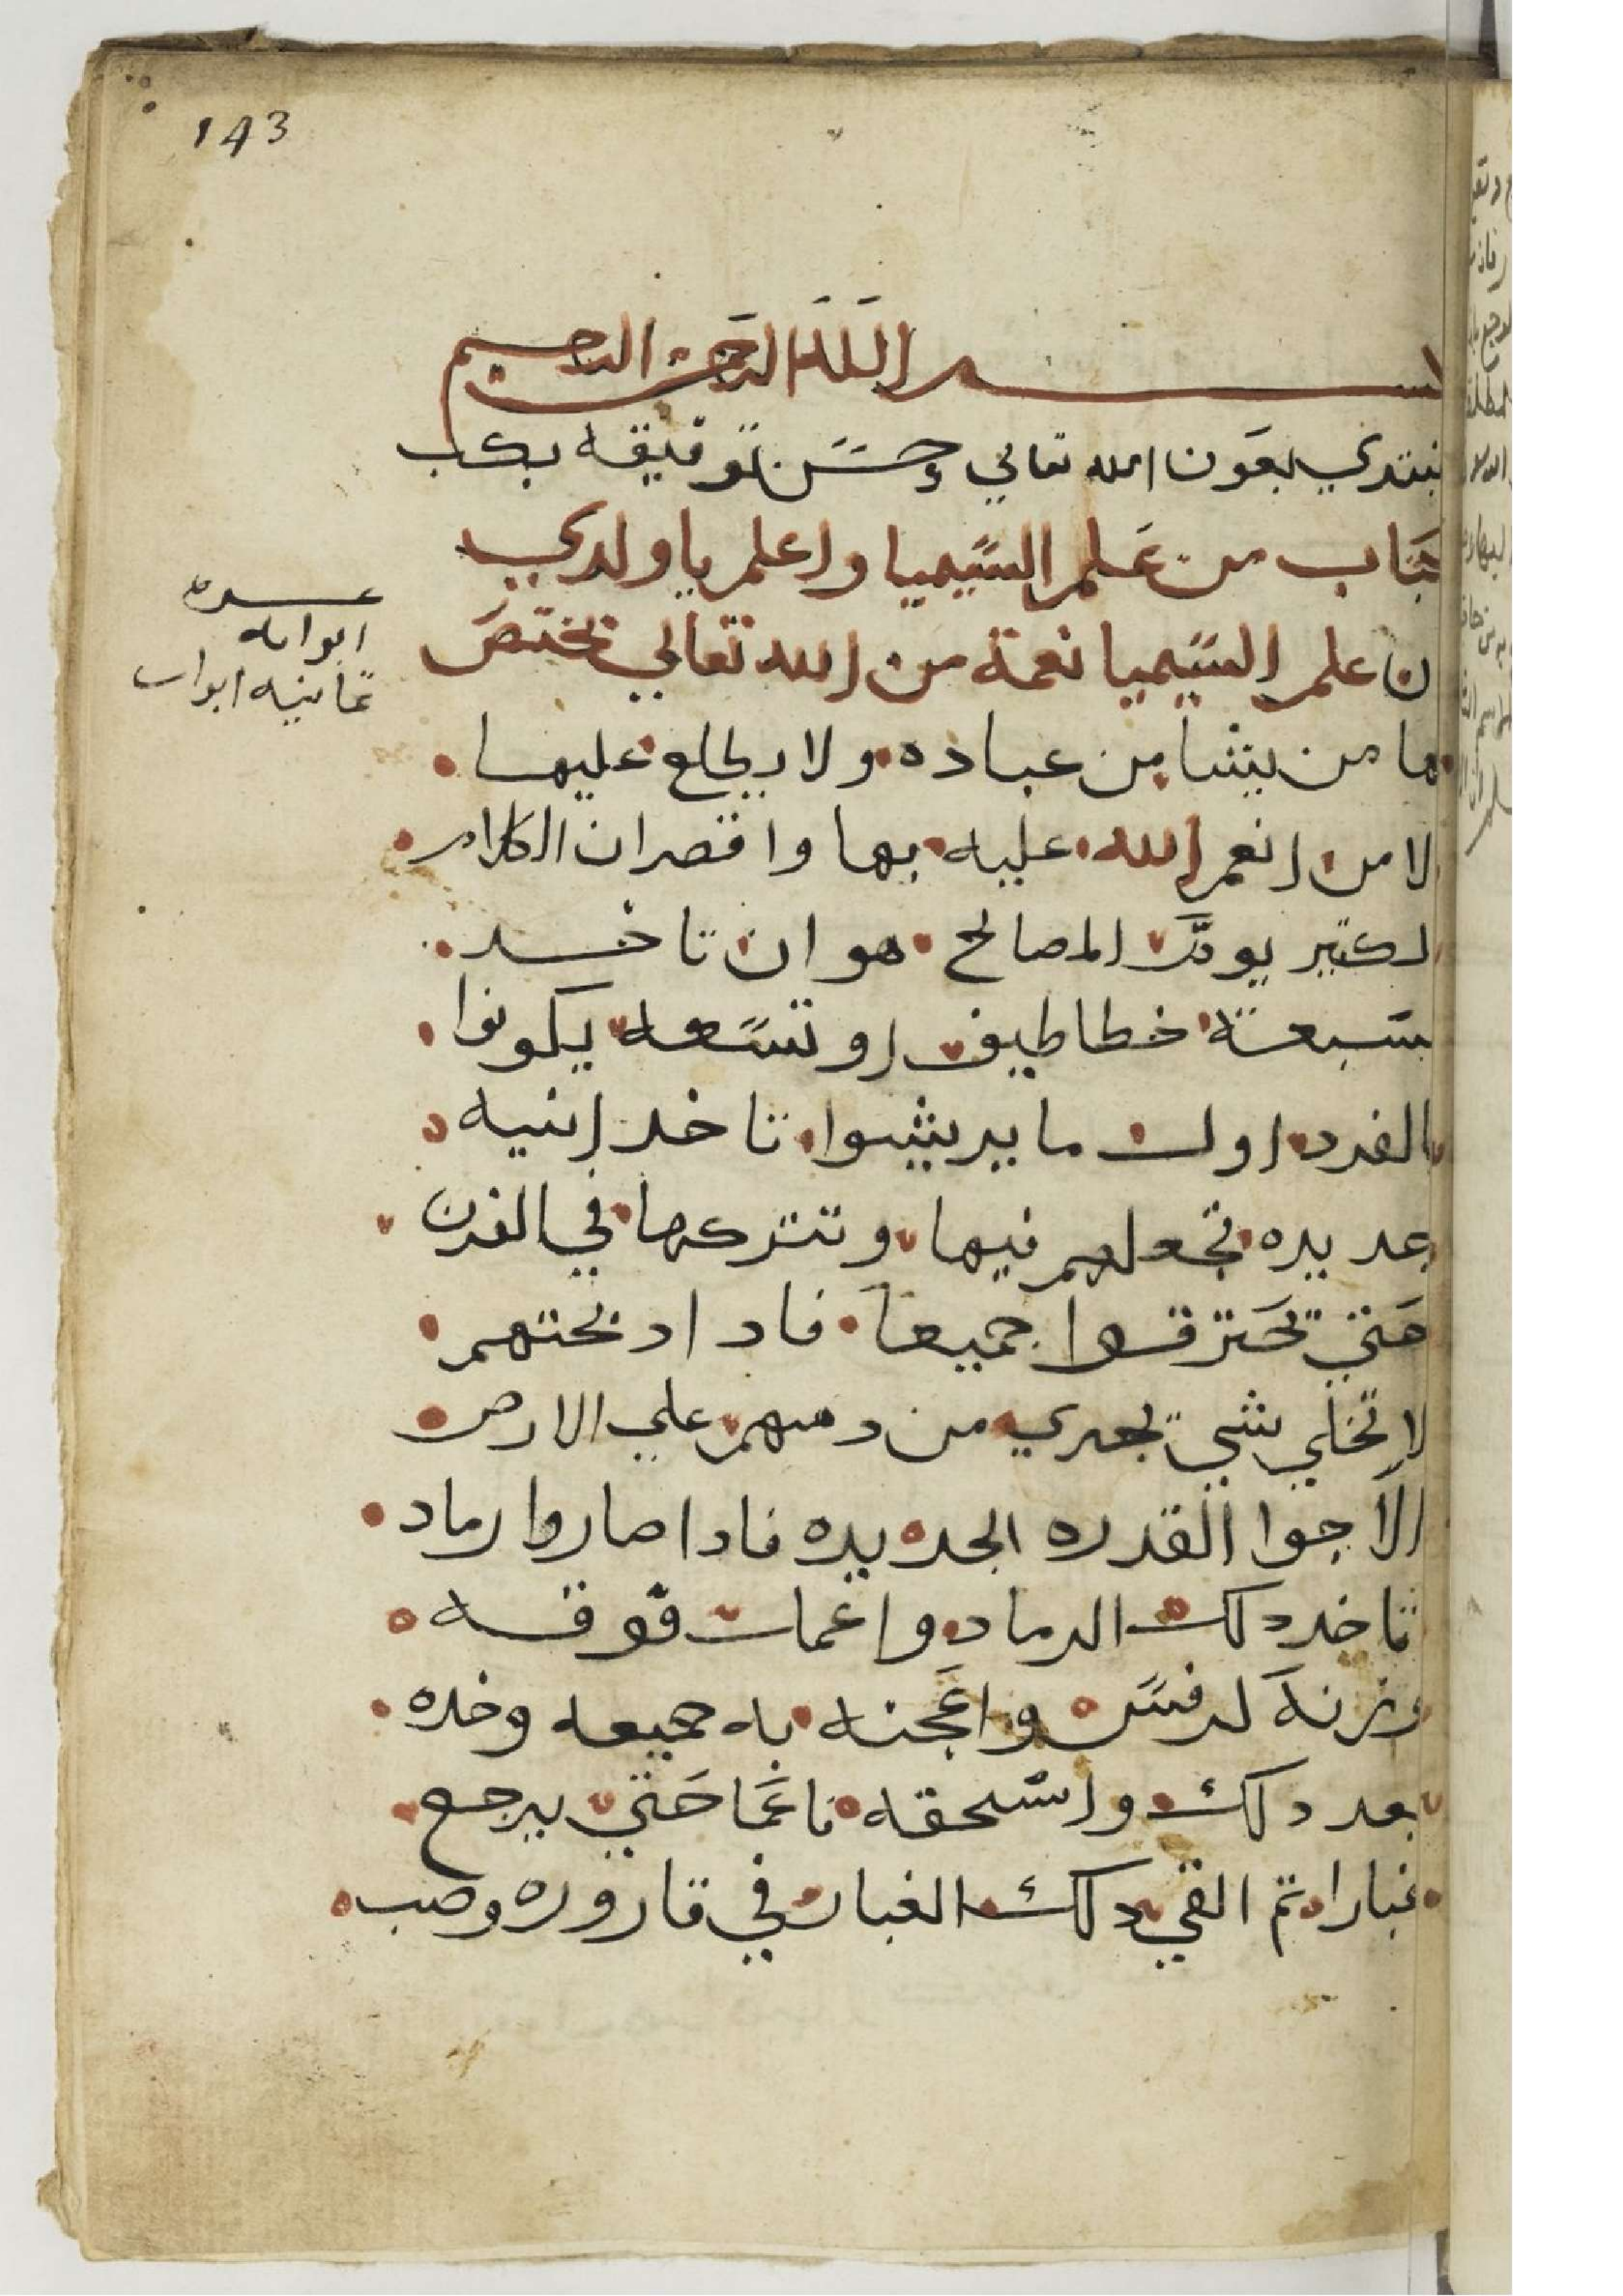 143
بسم الله الرحمن الرحيم
نبتدي بعون الله تعالي وحسن توفيقه بكتب
كتاب من علم السيميا واعلم يا ولدي
ان علم السيميا نعمة من الله تعالي يختص
بها من يشا من عباده ولا يطلع عليها
الا من انعم الله عليه بها واقصر ان الكلام
الكتير المصالح هو ان تاخد
سبعة خطاطيف او تسعه يكونوا
بالفرد اول ما يريشوا تاخد انيه
جديده تجعلهم فيها وتتركها في الفرن
حتي تحترقوا جميعا فادا دبحتهم
لا تخلي شي يجري من دمهم علي الارض
الا جوا القدره الجديده فادا صاروا رماد
تاخد دلك الرماد واعمل فوقه
وزنه واعجنه به جميعه وخده
بعد دلك واسحقه ناعما حتي يرجع
غبارا تم القي دلك الغبار في قاروره وصب
عدة
ابوابه
تمانيه ابواب